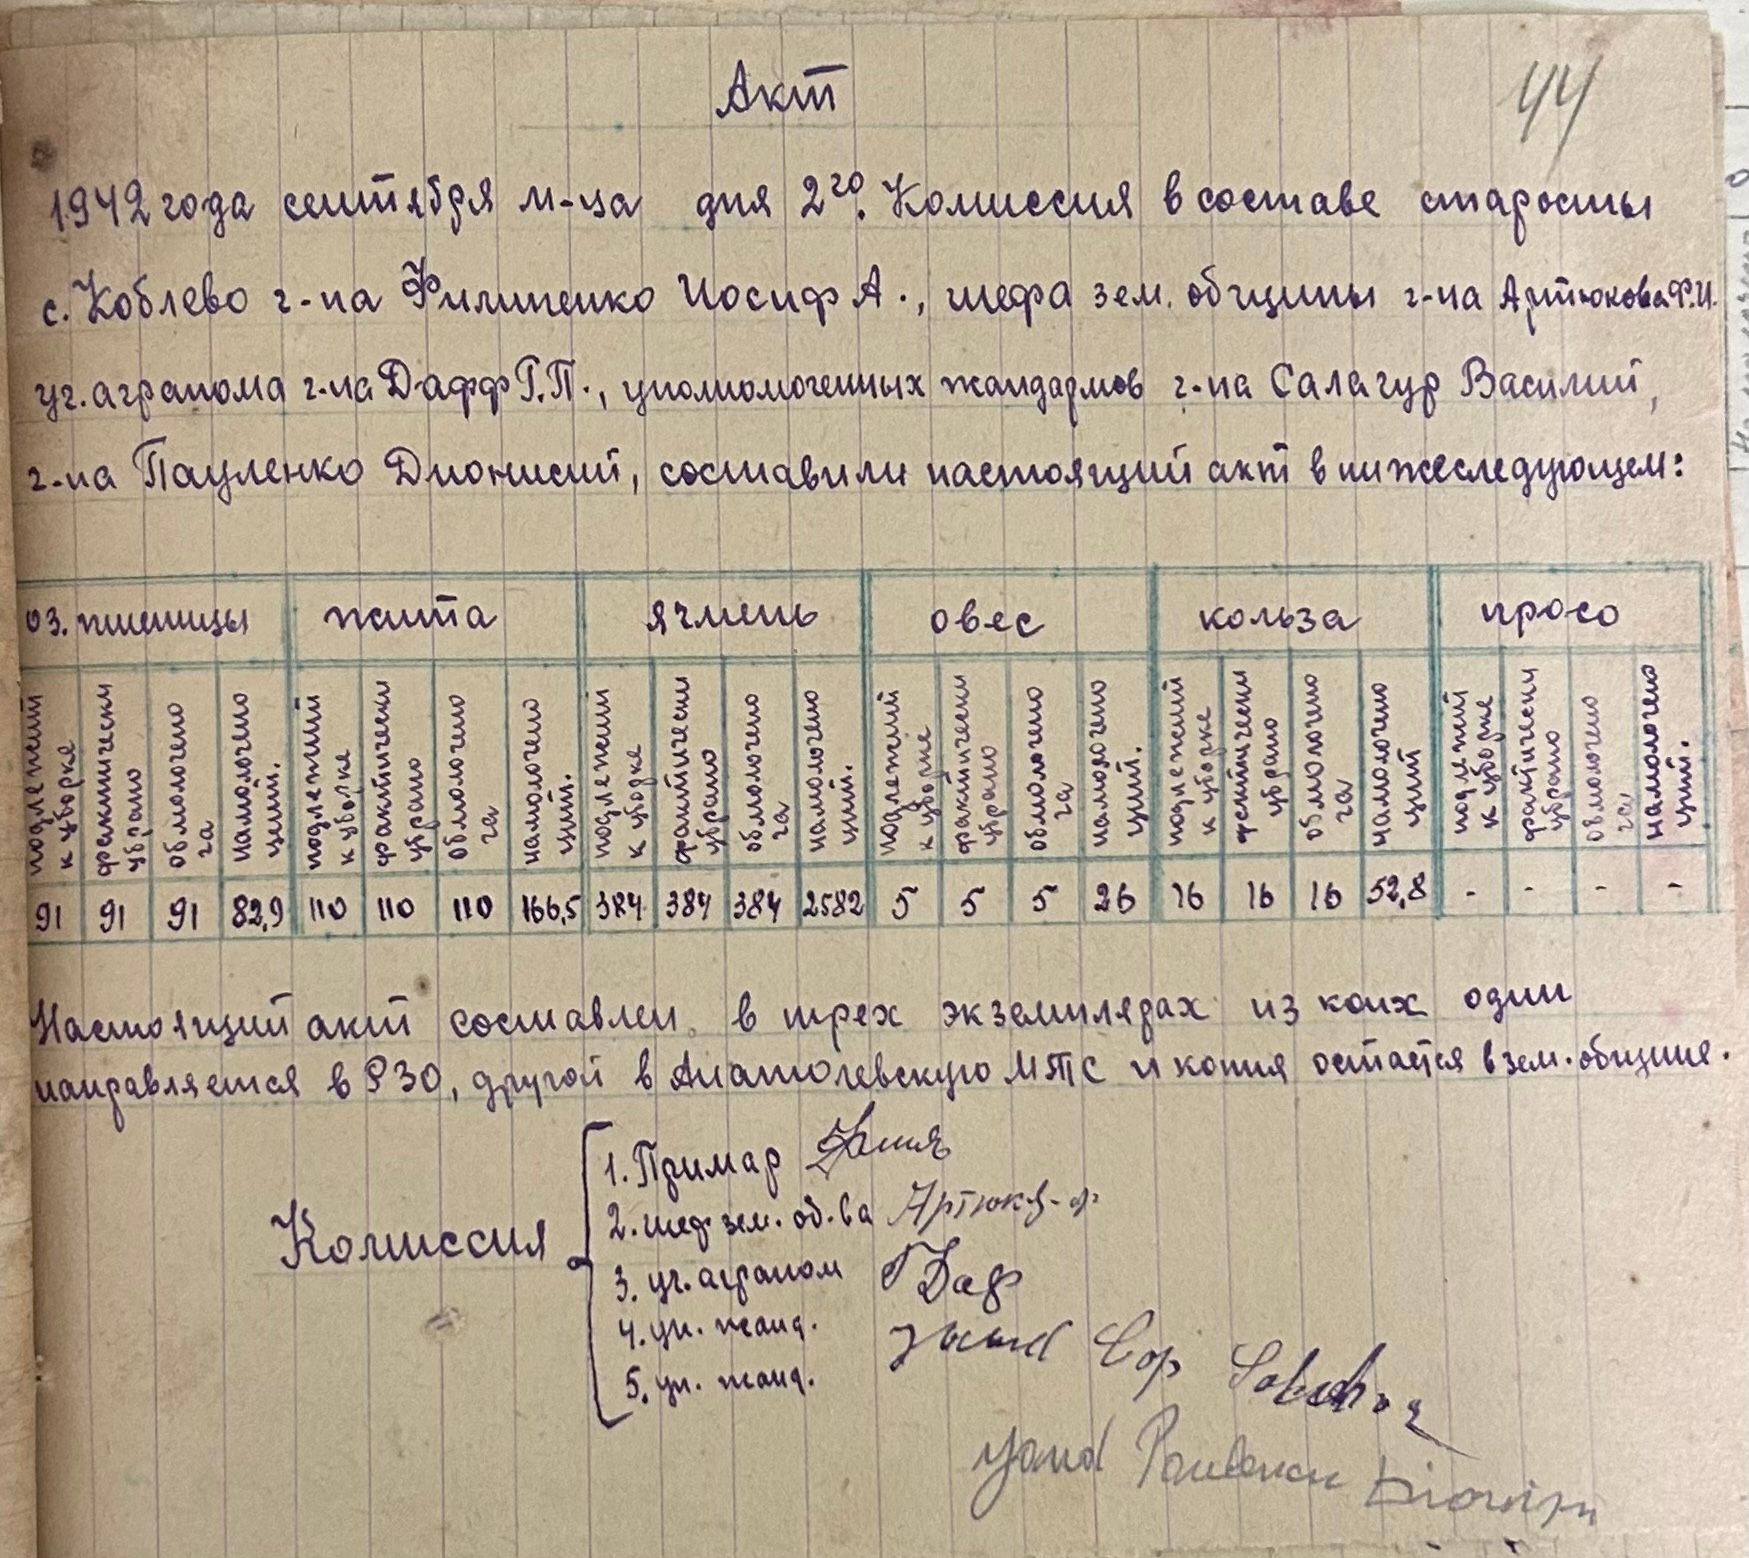 44
Акт
1942 года сентября м-ца дня 2го. Комиссия в составе старосты
с. Коблево г-на Филипенко Иосиф А., шефа зем. общины г-на Артюкова Ф.И.
уч. агранома г-на Дафф Г.П., уполномоченных жандармов г-на Салагур Василий,
г-на Пауленко Дионисий, составили настоящий акт в нижеследующем:
оз. пшеницы жита ячмень овес кольза просо
подлежит к уборке фактически убрано обмолочено га намолочено цнт. подлежит к уборке фактически убрано обмолочено га намолочено цнт. подлежит к уборке фактически убрано обмолочено га намолочено цнт. подлежит к уборке фактически убрано обмолочено га намолочено цнт. подлежит к уборке фактически убрано обмолочено га намолочено цнт подлежит к уборке фактически убрано обмолочено га намолочено цнт.
91 91 91 82,9 110 110 110 166,5 384 384 384 2582 5 5 5 26 16 16 16 52,8 - - - -
Настоящий акт составлен в трех экземплярах из коих один
направляется в РЗО, другой в Анатолевскую МТС и копия остается в зем. общине.
Комиссия
1. Примар
2. шеф зем. об-ва Артюков-ф
3. уч. аграном ГДаф
4. уп. жанд.
5. уп. жанд.
Jand Paulencu